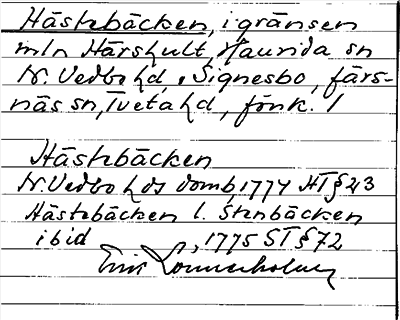 Hästebäcken, i gränsen
mln Hårshult, Haurida sn
N. Vedbo hd, o. Signesbo, Järs-
näs sn, Tveta hd, fönk. 1
Hästebäcken
N. Vedbo hds domb, 1774 HT § 23
Hästebäcken l. Stenbäcken
ibid , 1775 ST § 72
Eric Lönnerholm